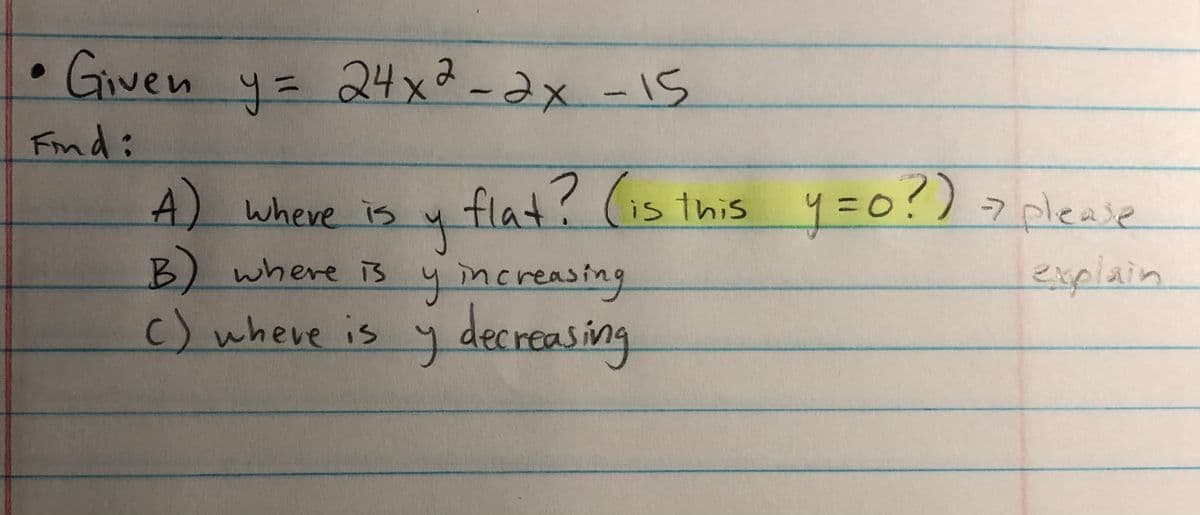 • Given y = 24x² - 2x - 15
Find:
A) where is y flat? (is this y=0?) → please explain
B) where is y increasing
C) where is y decreasing